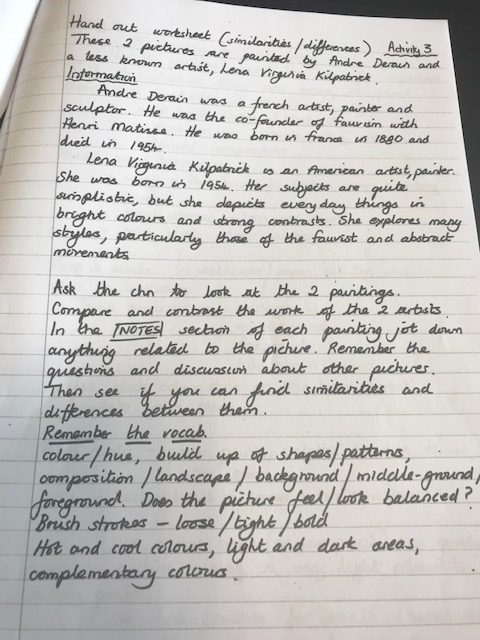 Hand out worksheet (similarities/differences) Activity 3
These 2 pictures are painted by Andre Derain and
a less known artist, Lena Virginia Kilpatrick.
Information
Andre Derain was a french artist, painter and
sculptor. He was the co-founder of fauvism with
Henri Matisse. He was born in france in 1880 and
died in 1954.
Lena Virginia Kilpatrick is an American artist, painter.
She was born in 1954. Her subjects are quite
simplistic, but she depicts every day things in
bright colours and strong contrasts. She explores many
styles, particularly those of the fauvist and abstract
movements
Ask the chn to look at the 2 paintings.
Compare and contrast the work of the 2 artists.
In the NOTES section of each painting jot down
anything related to the picture. Remember the
questions and discussion about other pictures.
Then see if you can find similarities and
differences between them.
Remember the vocab.
colour/hue, build up of shapes/patterns,
composition/landscape/background/middle-ground/
foreground. Does the picture feel/look balanced?
Brush strokes - loose/tight/bold
Hot and cool colours, light and dark areas,
complementary colours.